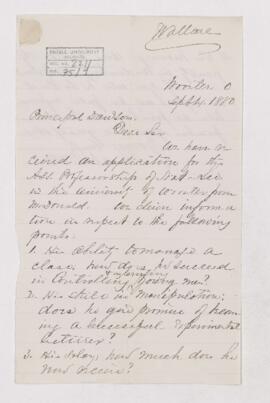 Wallace
McGILL UNIVERSITY
ARCHIVES
ACC. NO. 2211
REF. 35/1
Wooster O
Sept 4. 1880
Principal Dawson.
Dear Sir
We have re
ceived an application for the
Adj. Professorship of Nat. Sci
in the University of Wooster from
McDonald. We desire informa
tion in respect to the following
points.
1. His ability to manage a
class, how does he succeed
in controlling & interesting young men?
2. His skill in manipulation;
does he give promise of becom
ing a successful experimental
lecturer?
3. His salary, how much does he
now receive?